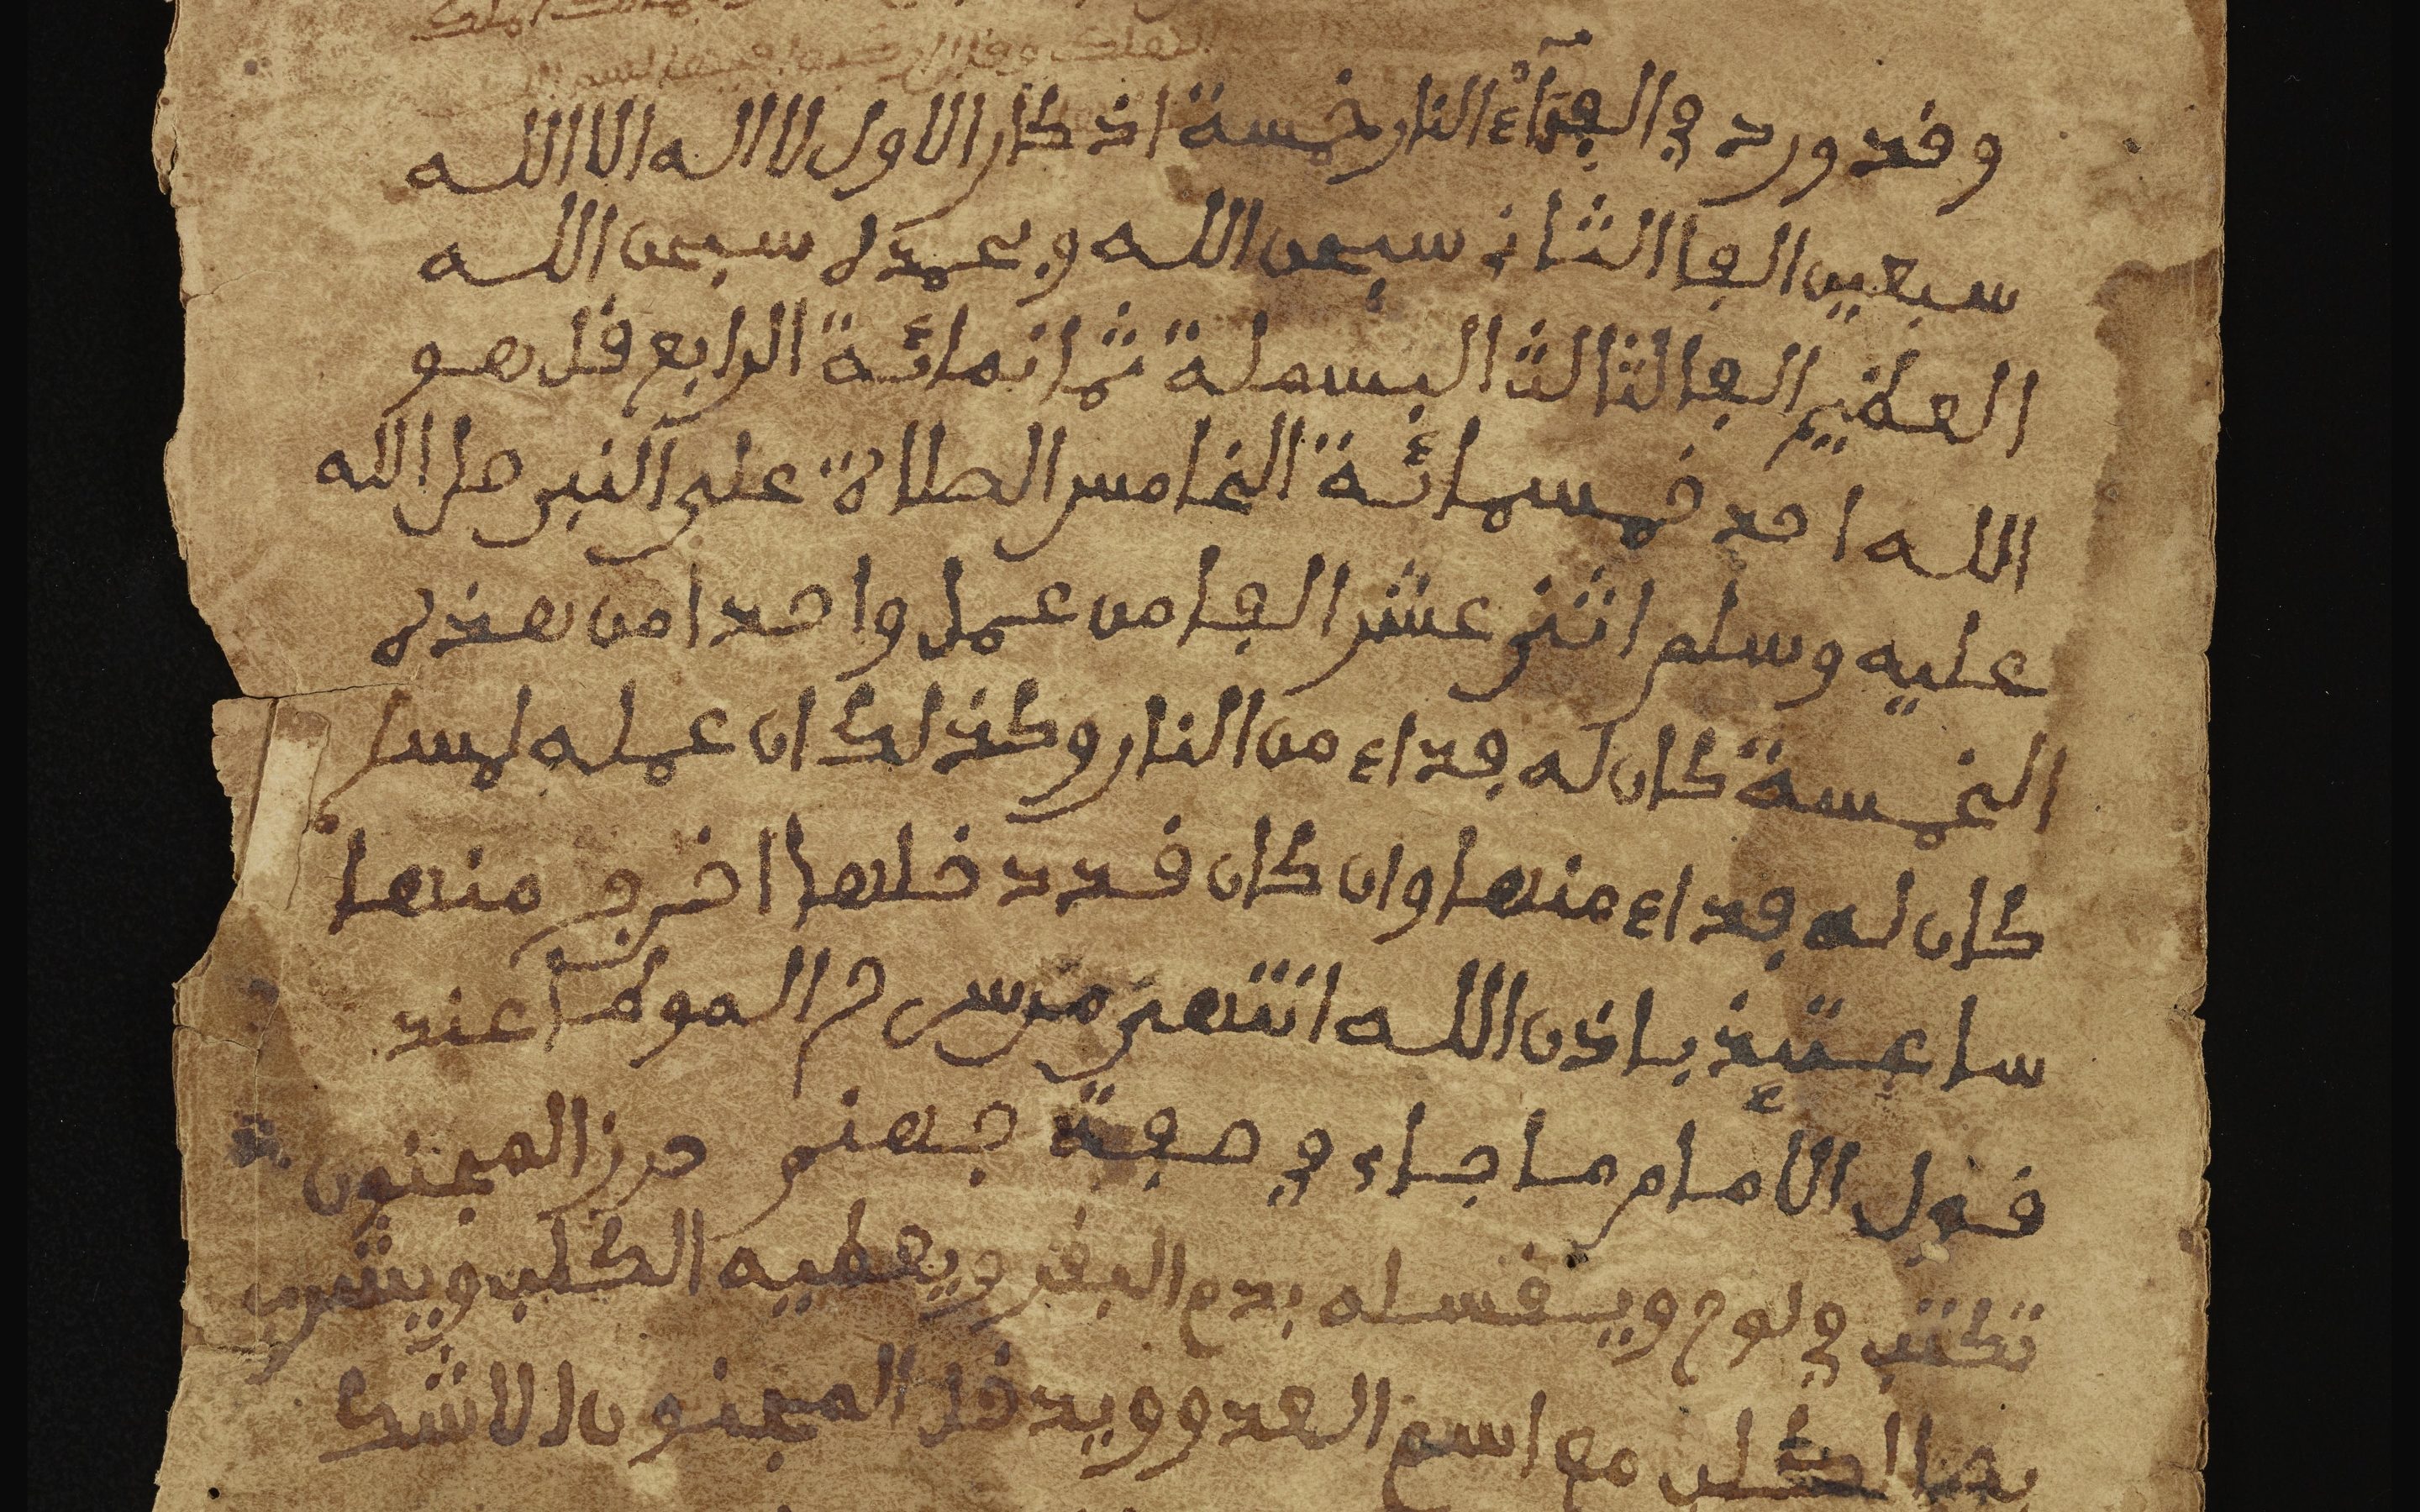 وقد ورد في الفداء النار خمسة اذكار الاول لا اله الا الله
سبعين الفا الثاني سبحن الله وبحمده سبحن الله
العظيم الفا الثالث البسملة ثمانمائة الرابع قل هو
الله احد خمسمائة الخامس الصلاة على النبي صل الله
عليه وسلم اثني عشر الفا من عمل واحدا من هذه
الخمسة كان له فداء من النار وكذلك ان عمله لمسلم
كان له فداء منها وان كان قد دخلها اخرج منها
ساعتئذ باذن الله انتهى من الموطأ عند
قول الامام ما جاء في صفة جهنم حرز المجنون
تكتب في لوح ويغسله بدم البقر ويعطيه الكلب ويشرب
الكلب مع اسم العدو ويدخل المجنون